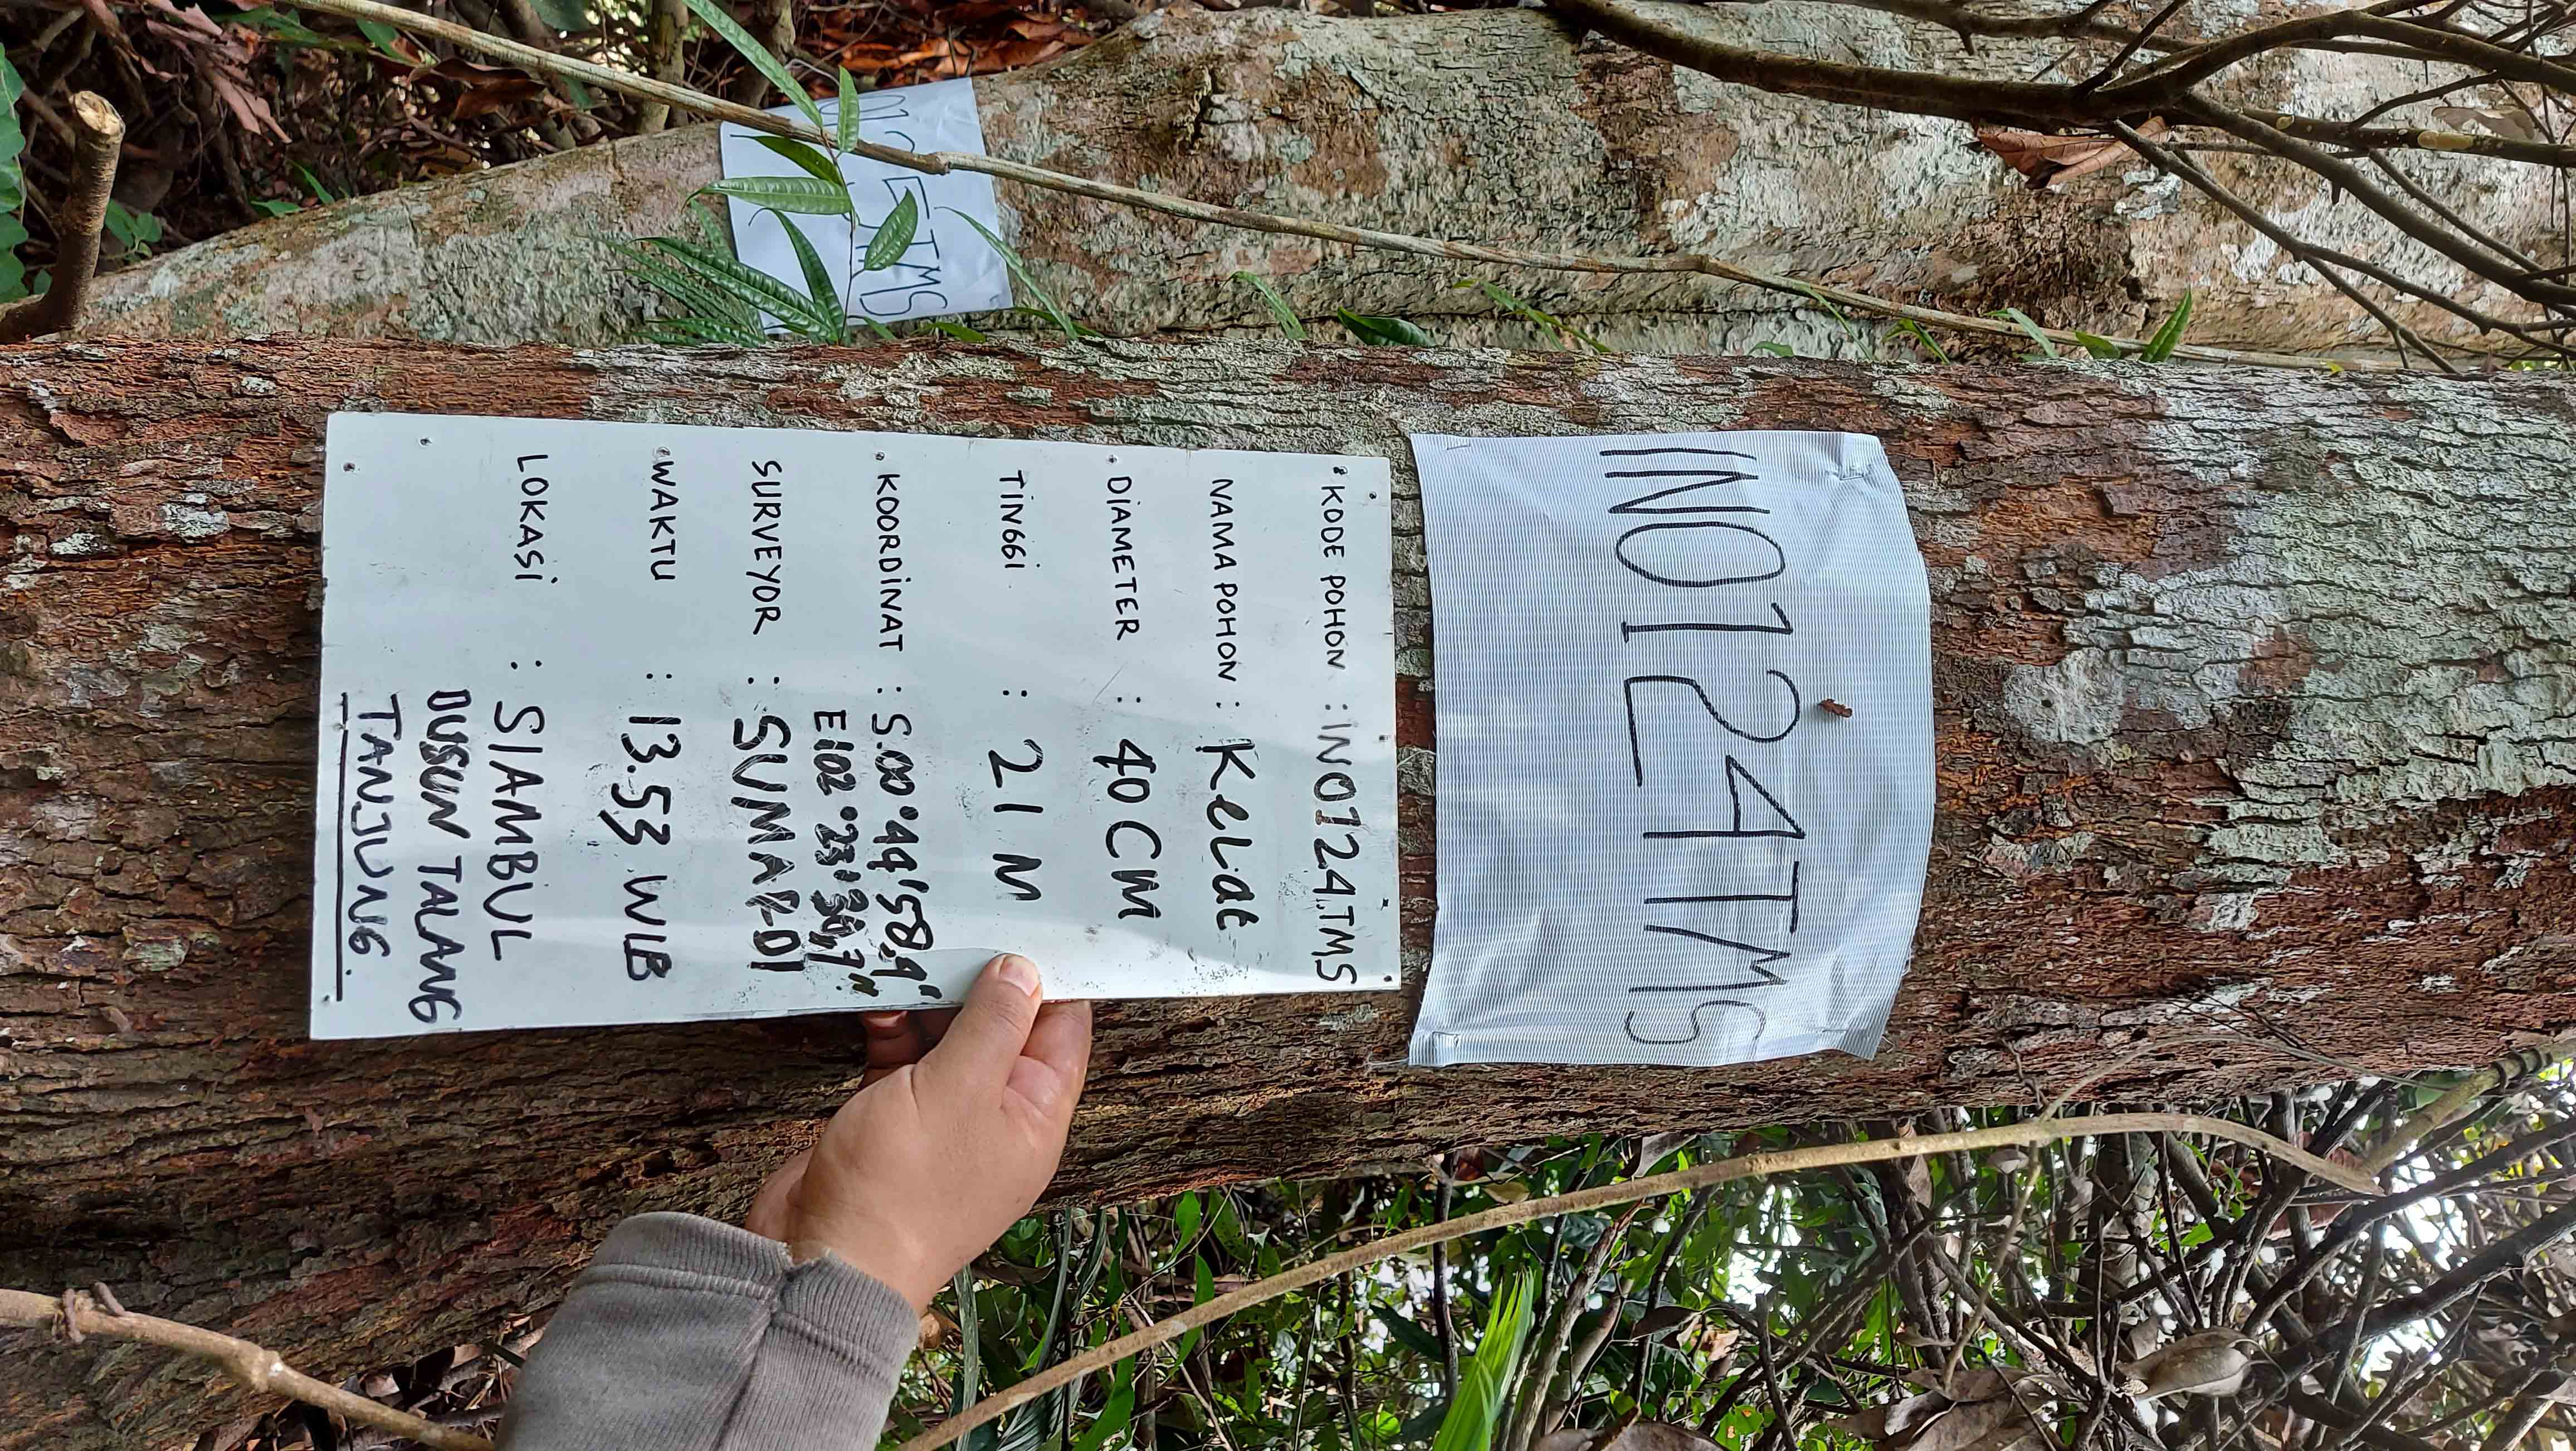 IN0124TMS
KODE POHON : IN0124.TMS
NAMA POHON : KeLat
DIAMETER : 40 CM
TINGGI : 21 M
KOORDINAT : S.00°44'58,9"
E102°23'30,7"
SURVEYOR : SUMARDI
WAKTU : 13.53 WIB
LOKASI : SIAMBUL
DUSUN TALANG
TANJUNG.